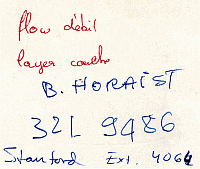 flow débit
layer couche
B. HORAIST
32L 9486
Stanford Ext. 4064